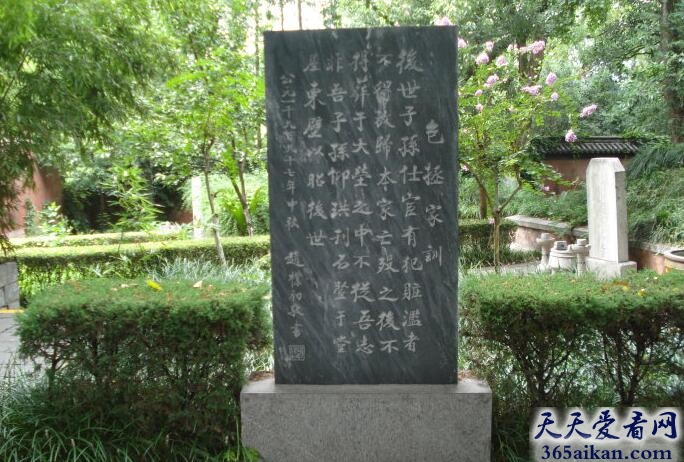 包拯家訓
後世子孫仕宦有犯贓濫者
不得放歸本家亡歿之後不
得葬于大塋之中不從吾志
非吾子孫仰珙刊石竪于堂
屋東壁以昭後世
公元一千九百八十七年中秋 趙樸初敬書
天天爱看网
365aikan.com